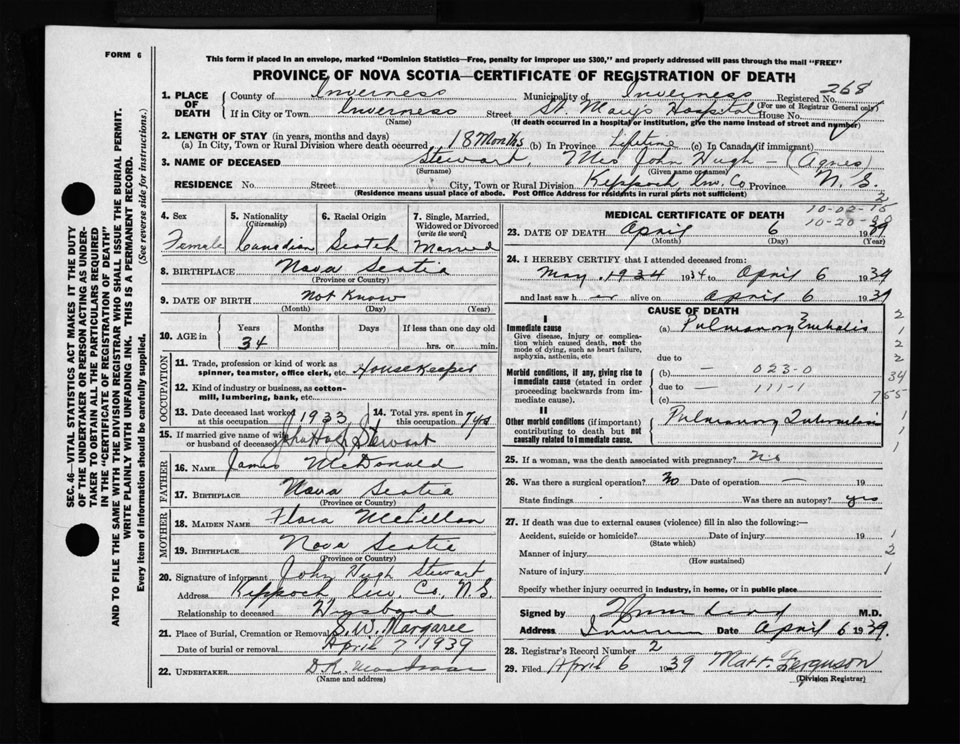 FORM 6
This form if placed in an envelope, marked "Dominion Statistics—Free, penalty for improper use $300," and properly addressed will pass through the mail "FREE"
PROVINCE OF NOVA SCOTIA—CERTIFICATE OF REGISTRATION OF DEATH
1. PLACE OF DEATH
County of Inverness Municipality of Inverness Registered No. 268
(For use of Registrar General only)
If in City or Town Inverness Street St. Mary's Hospital House No.
(Name) (If death occurred in a hospital or institution, give the name instead of street and number)
2. LENGTH OF STAY (in years, months and days)
(a) In City, Town or Rural Division where death occurred 18 Months (b) In Province Lifetime (c) In Canada (if immigrant)
3. NAME OF DECEASED Stewart, Mrs John Hugh — (Agnes)
(Surname) (Given name or names)
RESIDENCE No. Street City, Town or Rural Division Keppoch, Inv. Co Province N. S.
(Residence means usual place of abode. Post Office Address for residents in rural parts not sufficient)
4. Sex Female
5. Nationality (Citizenship) Canadian
6. Racial Origin Scotch
7. Single, Married, Widowed or Divorced (write the word) Married
8. BIRTHPLACE Nova Scotia
(Province or Country)
9. DATE OF BIRTH Not Know
(Month) (Day) (Year)
10. AGE in Years Months Days If less than one day
34 hrs. or min.
OCCUPATION
11. Trade, profession or kind of work as spinner, teamster, office clerk, etc. Housekeeper
12. Kind of industry or business, as cotton-mill, lumbering, bank, etc.
13. Date deceased last worked at this occupation 1933
14. Total yrs. spent in this occupation 7 yrs
15. If married give name of wife or husband of deceased John Hugh Stewart
FATHER
16. NAME James McDonald
17. BIRTHPLACE Nova Scotia
(Province or Country)
MOTHER
18. MAIDEN NAME Flora McLellan
19. BIRTHPLACE Nova Scotia
(Province or Country)
20. Signature of informant John Hugh Stewart
Address Keppoch Inv. Co, N.S.
Relationship to deceased Husband
21. Place of Burial, Cremation or Removal S. W. Margaree
Date of burial or removal April 7 1939
22. UNDERTAKER D. R.
(Name and address)
MEDICAL CERTIFICATE OF DEATH
23. DATE OF DEATH April 6 1939
(Month) (Day) (Year)
24. I HEREBY CERTIFY that I attended deceased from:
May 1934 1934 to April 6 1939
and last saw h er alive on April 6 1939
CAUSE OF DEATH
I
Immediate cause
Give disease, injury or complication which caused death, not the mode of dying, such as heart failure, asphyxia, asthenia, etc
(a) Pulmonary Embolis
due to
Morbid conditions, if any, giving rise to immediate cause (stated in order proceeding backwards from immediate cause).
(b) — 023-0
due to — 111-1
(c)
II
Other morbid conditions (if important) contributing to death but not causally related to immediate cause.
Pulmonary Tuberculosis
25. If a woman, was the death associated with pregnancy? No
26. Was there a surgical operation? No Date of operation —
State findings Was there an autopsy? yes
27. If death was due to external causes (violence) fill in also the following:—
Accident, suicide or homicide? Date of injury 19
(State which)
Manner of injury
(How sustained)
Nature of injury
Specify whether injury occurred in industry, in home, or in public place
Signed by M.D.
Address Date April 6 1939.
28. Registrar's Record Number 2
29. Filed April 6 1939 Matt. Ferguson
(Division Registrar)
SEC. 46—VITAL STATISTICS ACT MAKES IT THE DUTY OF THE UNDERTAKER OR PERSON ACTING AS UNDERTAKER TO OBTAIN ALL THE PARTICULARS REQUIRED IN THE "CERTIFICATE OF REGISTRATION OF DEATH"
AND TO FILE THE SAME WITH THE DIVISION REGISTRAR WHO SHALL ISSUE THE BURIAL PERMIT.
WRITE PLAINLY WITH UNFADING INK. THIS IS A PERMANENT RECORD.
Every item of information should be carefully supplied. (See reverse side for instructions.)